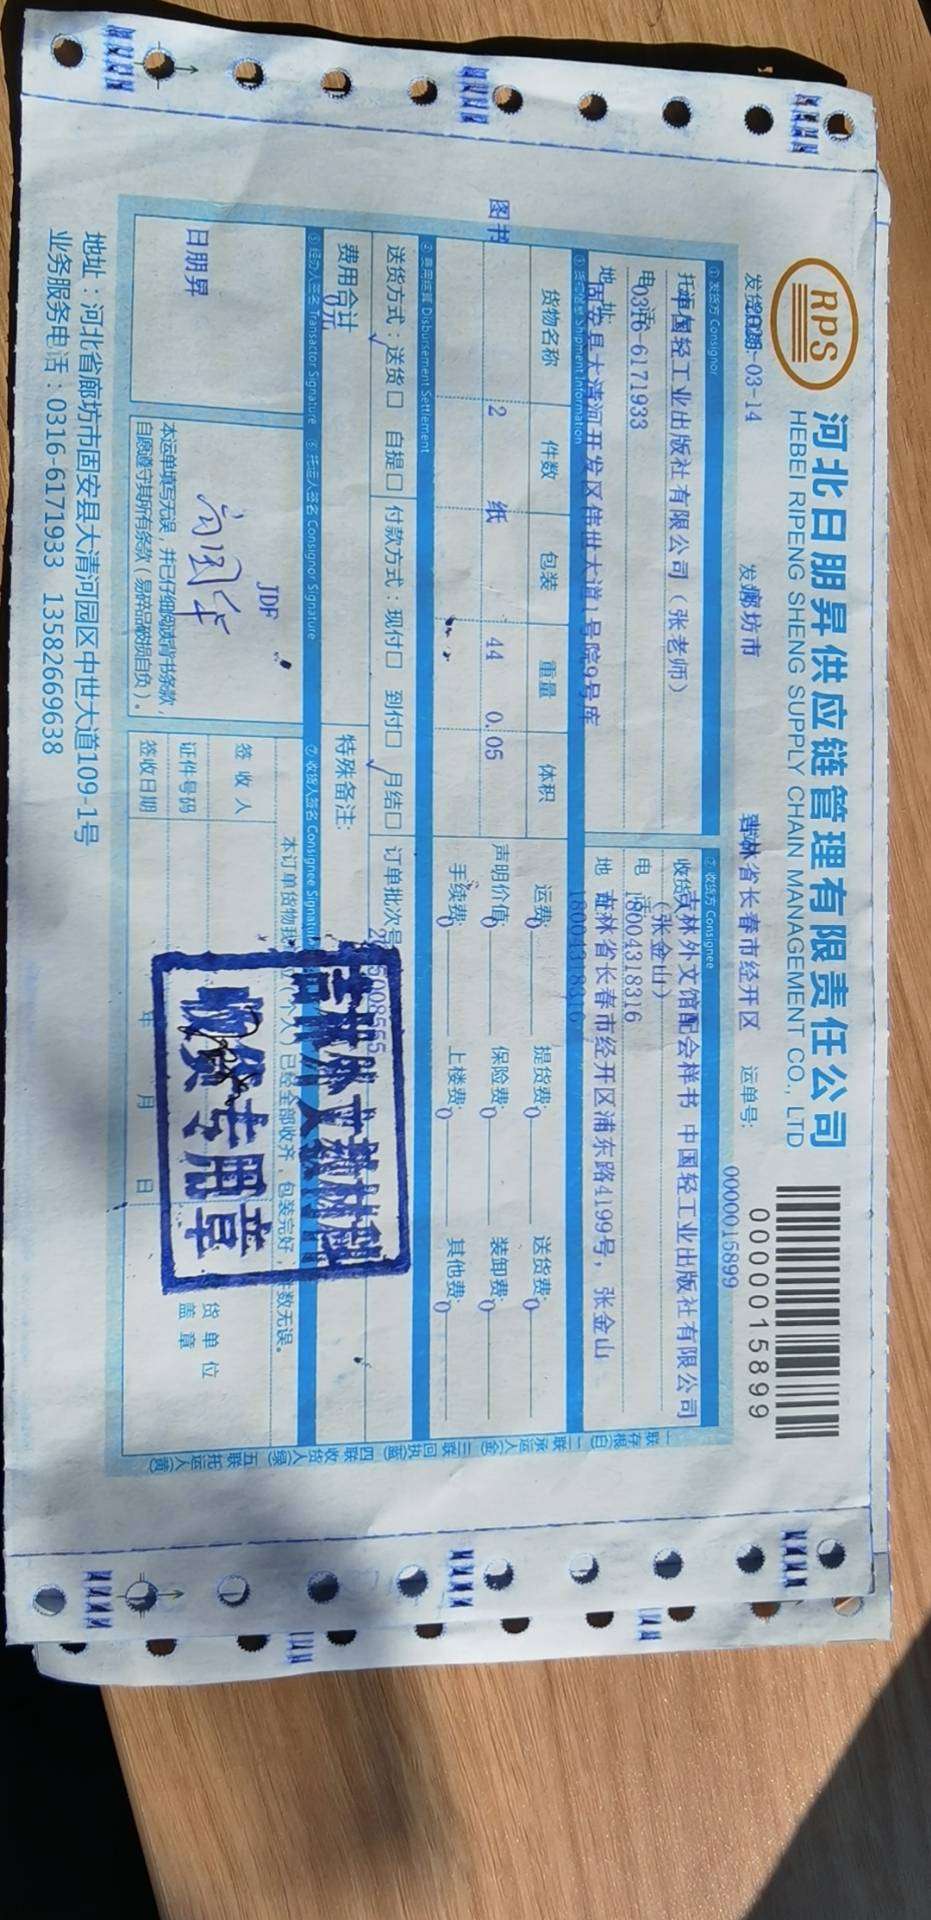 RPS
河北日朋昇供应链管理有限责任公司
HEBEI RIPENG SHENG SUPPLY CHAIN MANAGEMENT CO., LTD
0000015899
-03-14
廊坊市
吉林省长春市经开区
运单号:
0000015899
① 发货方 Consignor
② 收货方 Consignee
中国轻工业出版社有限公司（张老师）
吉林外文馆配会样书 中国轻工业出版社有限公司
（张金山）
0316-6171933
18004318316
固安县大清河开发区伟世大道1号院9号库
吉林省长春市经开区浦东路4199号，张金山
18004318316
③ 货物信息 Shipment Information
货物名称 件数 包装 重量 体积
图书 2 纸 44 0.05
运费:0 提货费:0 送货费:0
声明价值:0 保险费:0 装卸费:0
手续费:0 上楼费:0 其他费:0
④ 费用结算 Disbursement Settlement
送货方式：送货□ 自提□ 付款方式：现付□ 到付□ 月结□ 订单批次号
费用合计
0元
特殊备注:
⑤ 经办人签名 Transactor Signature ⑥ 托运人签名 Consignor Signature ⑦ 收货人签名 Consignee Signature
日朋昇
JDF
本运单填写无误，并已仔细阅读背书条款，
自愿遵守其所有条款（易碎品破损自负）。
个人）已经全部收齐，包装完好，件数无误。
签 收 人
证件号码
签收日期
年 月 日
货 单 位
盖 章
收货专用章
一联存根(白) 二联承运人(金) 三联回执(蓝) 四联收货人(绿) 五联托运人(黄)
地址：河北省廊坊市固安县大清河园区中世大道109-1号
业务服务电话：0316-6171933 13582669638